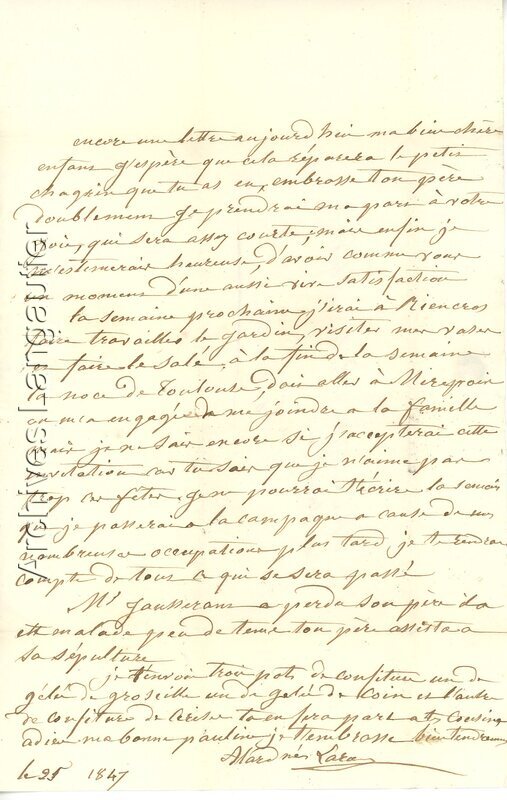 encore une lettre aujourd'hui ma bien chère
enfant j'espère que cela réparera le petit
chagrin que tu as eu, embrasse ton père
doublement je prendrai ma part à votre
joie, qui sera assez courte; mais enfin je
m'estimerais heureuse, d'avoir comme vous
un moment d'une aussi vive satisfaction
la semaine prochaine, j'irai à Riencros
faire travailler le jardin, visiter mes vases
et faire le salé, à la fin de la semaine
la noce de Toulouse, doit aller à Mirepoix
on m'a engagée de me joindre a la famille
mais je ne sais encore si j'accepterai cette
invitation car tu sais que je n'aime pas
trop ces fêtes. je ne pourrai t'écrire la semaine
que je passerai a la campagne a cause de mes
nombreuses occupations plus tard je te rendrai
compte de tous ce qui se sera passé
Mr Jausserans a perdu son père il a
été malade peu de tems ton père assista a
sa sépulture
je t'envoie trois pots de confiture un de
gélée de groseille un de gelée de Coin et l'autre
de confiture de cerise tu en fera part a tes cousines
adieu ma bonne pauline je t'embrasse bien tendrement
le 25 1847
delcampe.net | sevjLauragais